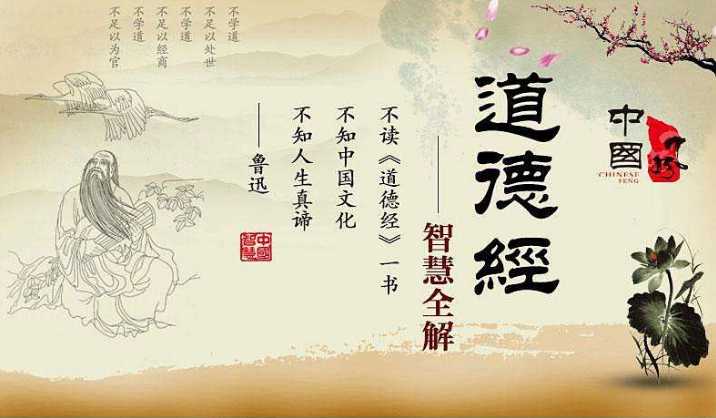 中國
風
CHINESE
FENG
道德經
——智慧全解
不读《道德经》一书
不知中国文化
不知人生真谛
——鲁迅
中國智慧
不学道
不足以处世
不学道
不足以经商
不学道
不足以为官